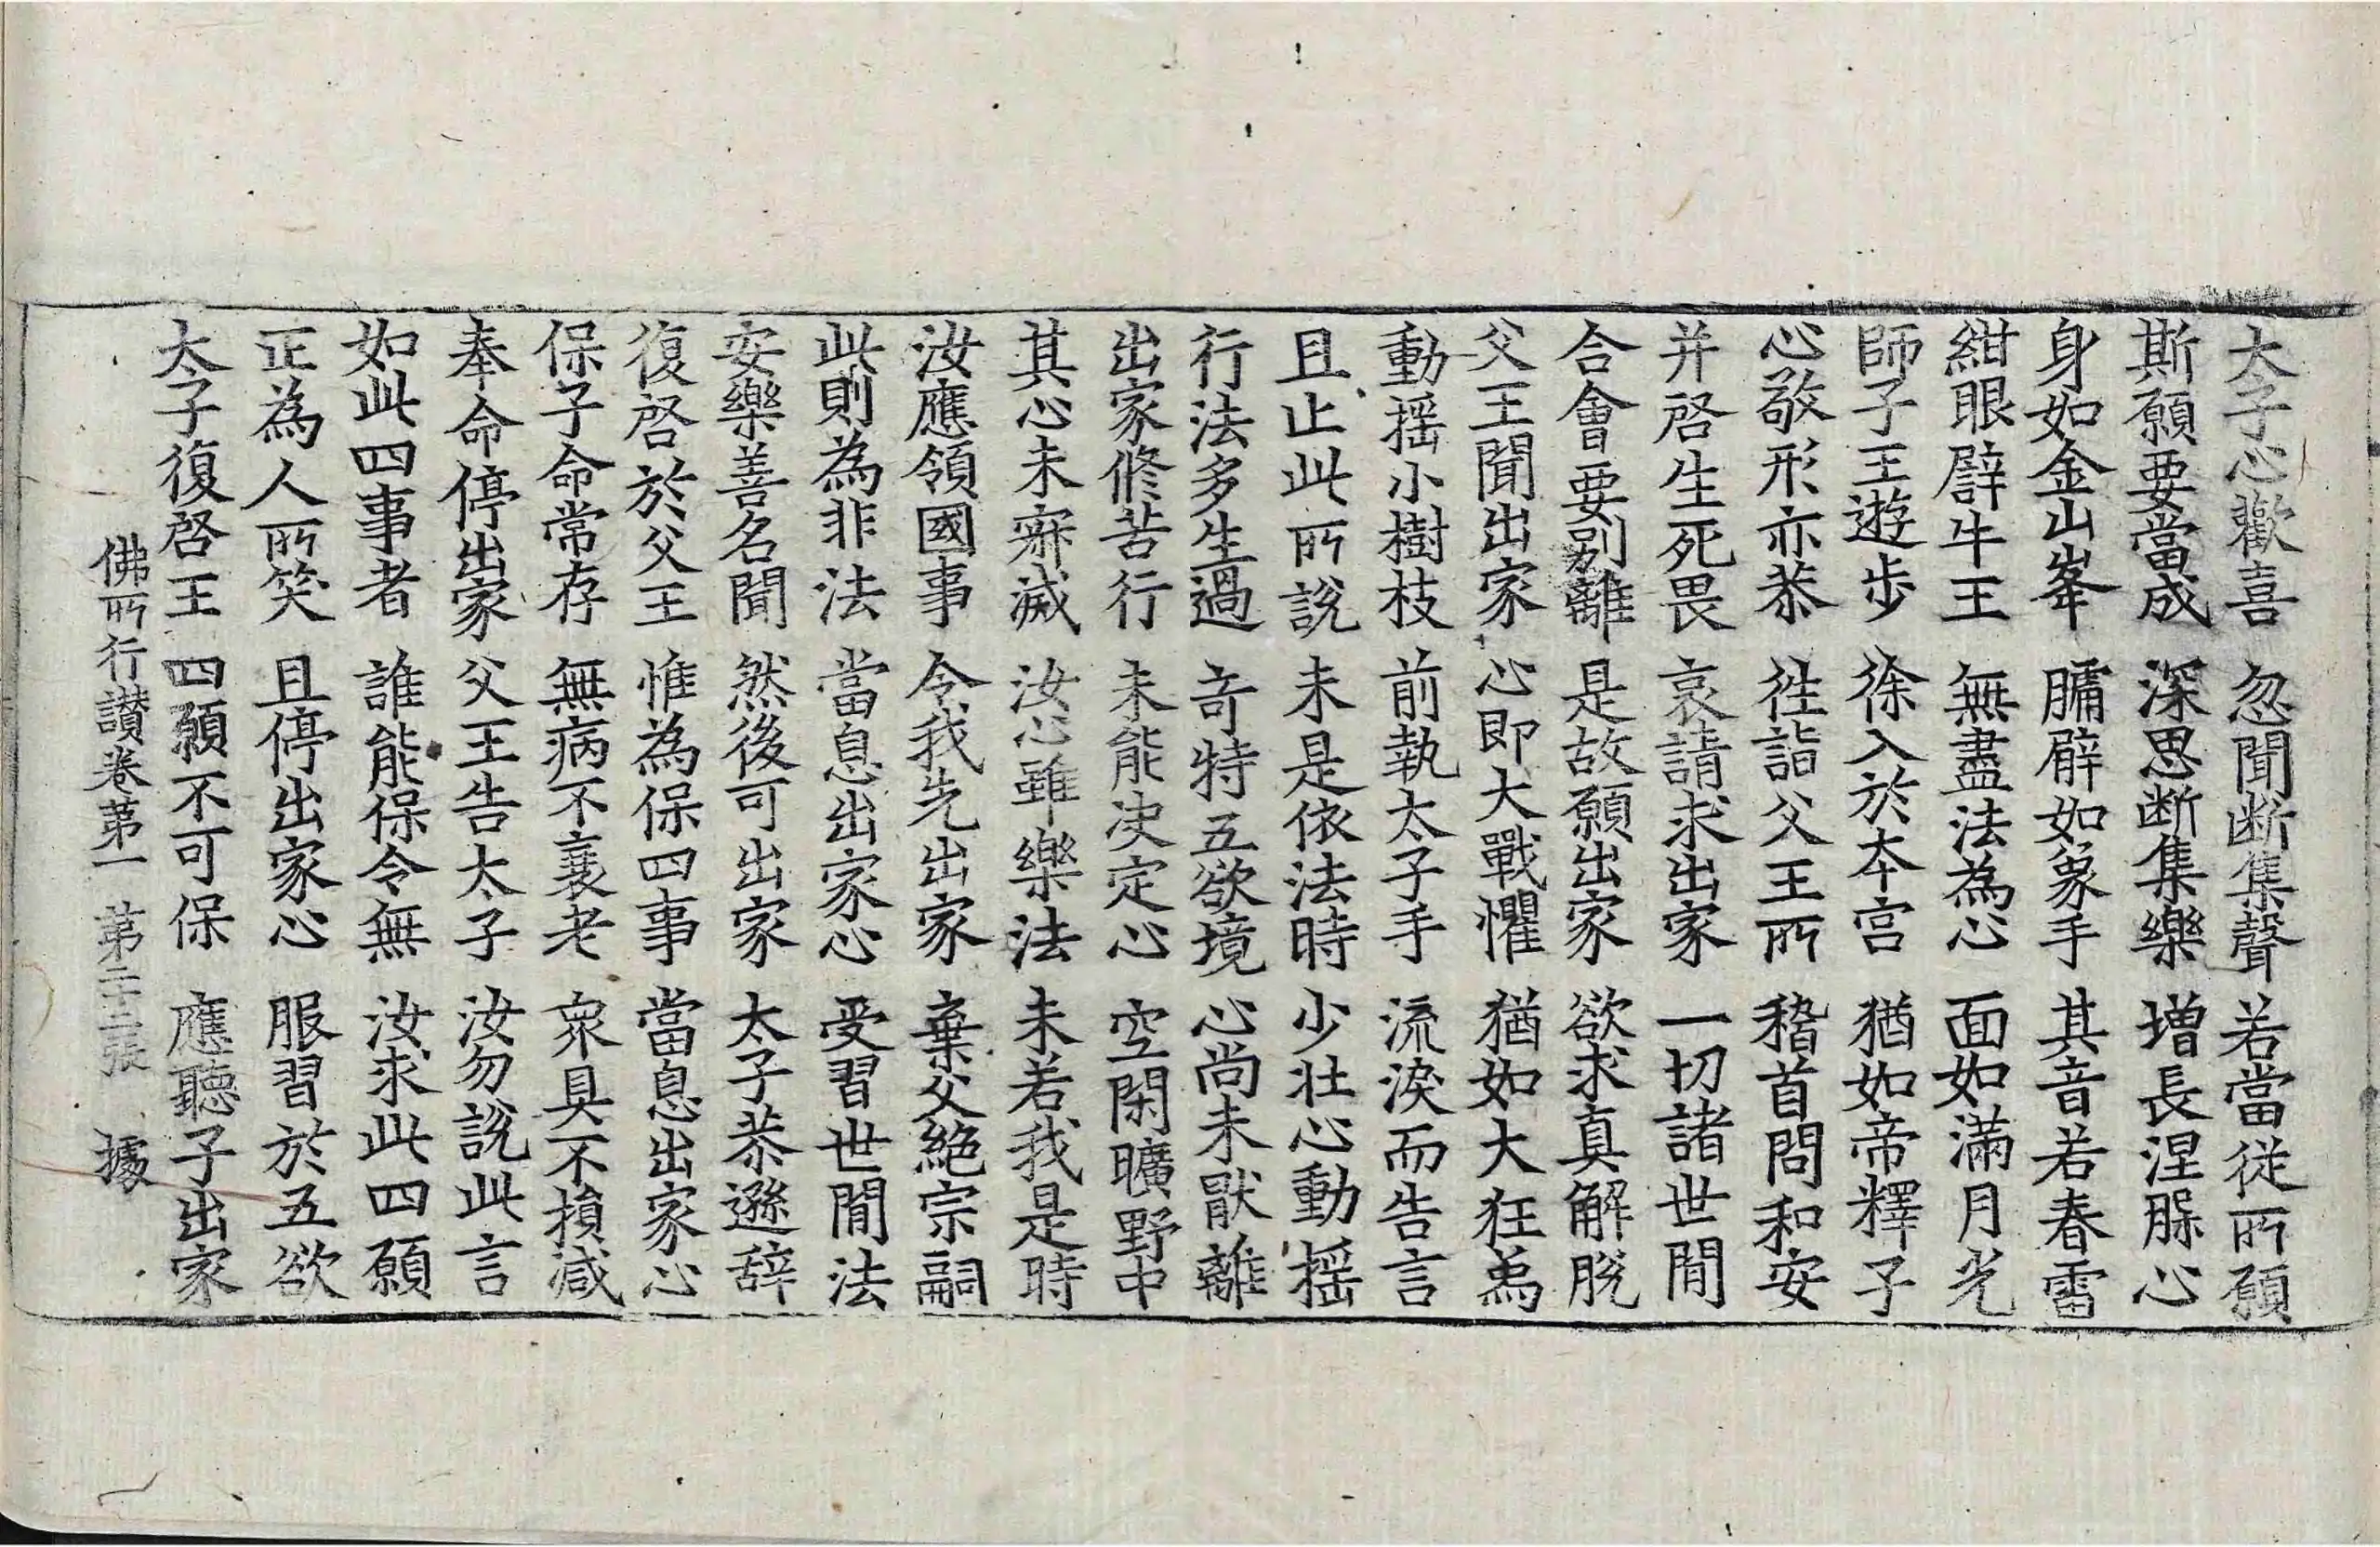 大子心歡喜 忽聞断集聲 若當從所願
斯願要當成 深思断集樂 增長涅𦙾心
身如金山峯 𦟛臂如象手 其音若春雷
紺眼譬牛王 無盡法為心 面如滿月光
師子王遊步 徐入於本宮 猶如帝釋子
心敬形亦恭 往詣父王所 稽首問和安
并啓生死畏 哀請求出家 一切諸世間
合會要别離 是故願出家 欲求真解脫
父王聞出家 心即大戰懼 猶如大狂為
動摇小樹枝 前執太子手 流淚而告言
且止此所說 未是依法時 少壯心動摇
行法多生過 奇特五欲境 心尚未厭離
出家修苦行 未能决定心 空閑曠野中
其心未寂滅 汝心雖樂法 未若我是時
汝應領國事 令我先出家 棄父絶宗嗣
此則為非法 當息出家心 受習世間法
安樂善名聞 然後可出家 太子恭遜辞
復啓於父王 惟為保四事 當息出家心
保子命常存 無病不衰老 衆具不損减
奉命停出家 父王告太子 汝勿說此言
如此四事者 誰能保令無 汝求此四願
正為人所笑 且停出家心 服習於五欲
太子復啓王 四願不可保 應聽子出家
佛所行讃卷苐一 苐二十二張 據